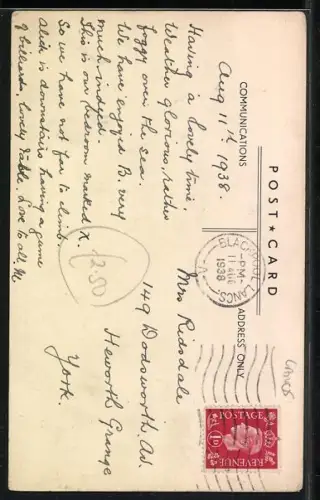 POST★CARD
COMMUNICATIONS
ADDRESS ONLY
Aug 11th 1938.
Having a lovely time.
Weather glorious, rather
foggy over the sea.
We have enjoyed B. very
much indeed.
This is our bedroom marked X.
So we have not far to climb.
Alick is downstairs having a game
of billiards, lovely table. Love to all. M
2.50
Mrs Ridsdale
149 Dodsworth. Av.
Heworth Grange
York.
BLACKPOOL
-PM-
11 AUG
1938
LANCS.
POSTAGE
1D
REVENUE